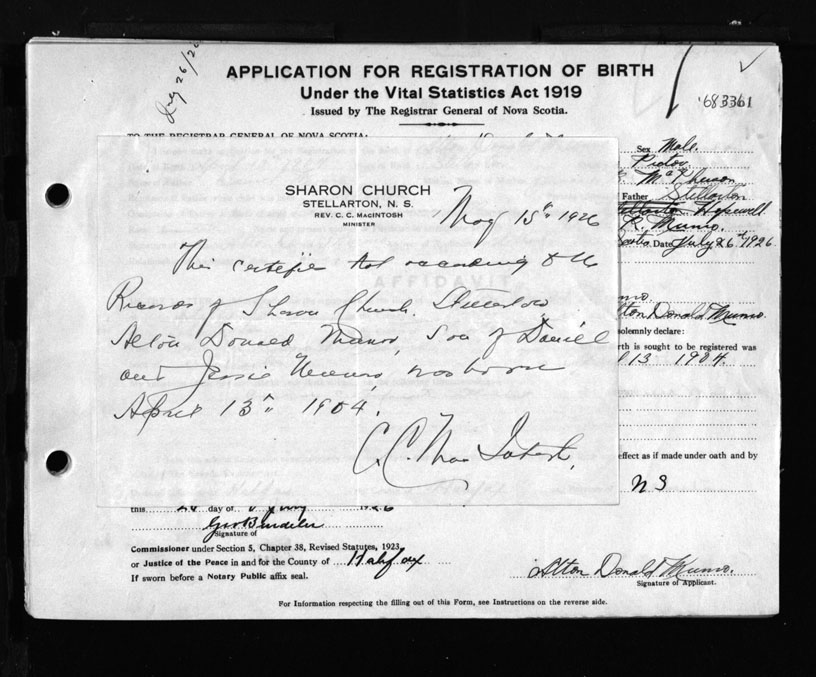 July 26/26
APPLICATION FOR REGISTRATION OF BIRTH
Under the Vital Statistics Act 1919
Issued by The Registrar General of Nova Scotia.
683361
TO THE REGISTRAR GENERAL OF NOVA SCOTIA:
Sex Male.
Pictou
McPherson
Father Stellarton
Hopewell
R. Munro.
Date July 26th 1926.
SHARON CHURCH
STELLARTON, N. S.
REV. C. C. MACINTOSH
MINISTER
May 15th 1926
This certifies that according to the
Records of Sharon Church Stellarton
Alton Donald Munro, Son of Daniel
and Jessie Munro, was born
April 13th 1904.
C. C. MacIntosh.
AFFIDAVIT
Alton Donald Munro.
solemnly declare:
rth is sought to be registered was
13 1904.
effect as if made under oath and by
N S
this day of 1926
Signature of
Commissioner under Section 5, Chapter 38, Revised Statutes, 1923,
or Justice of the Peace in and for the County of Halifax
If sworn before a Notary Public affix seal.
Alton Donald Munro.
Signature of Applicant.
For Information respecting the filling out of this Form, see Instructions on the reverse side.